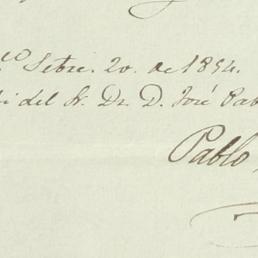 Setbre. 20. de 1854.
del S. Dr. D. José Pab
Pablo